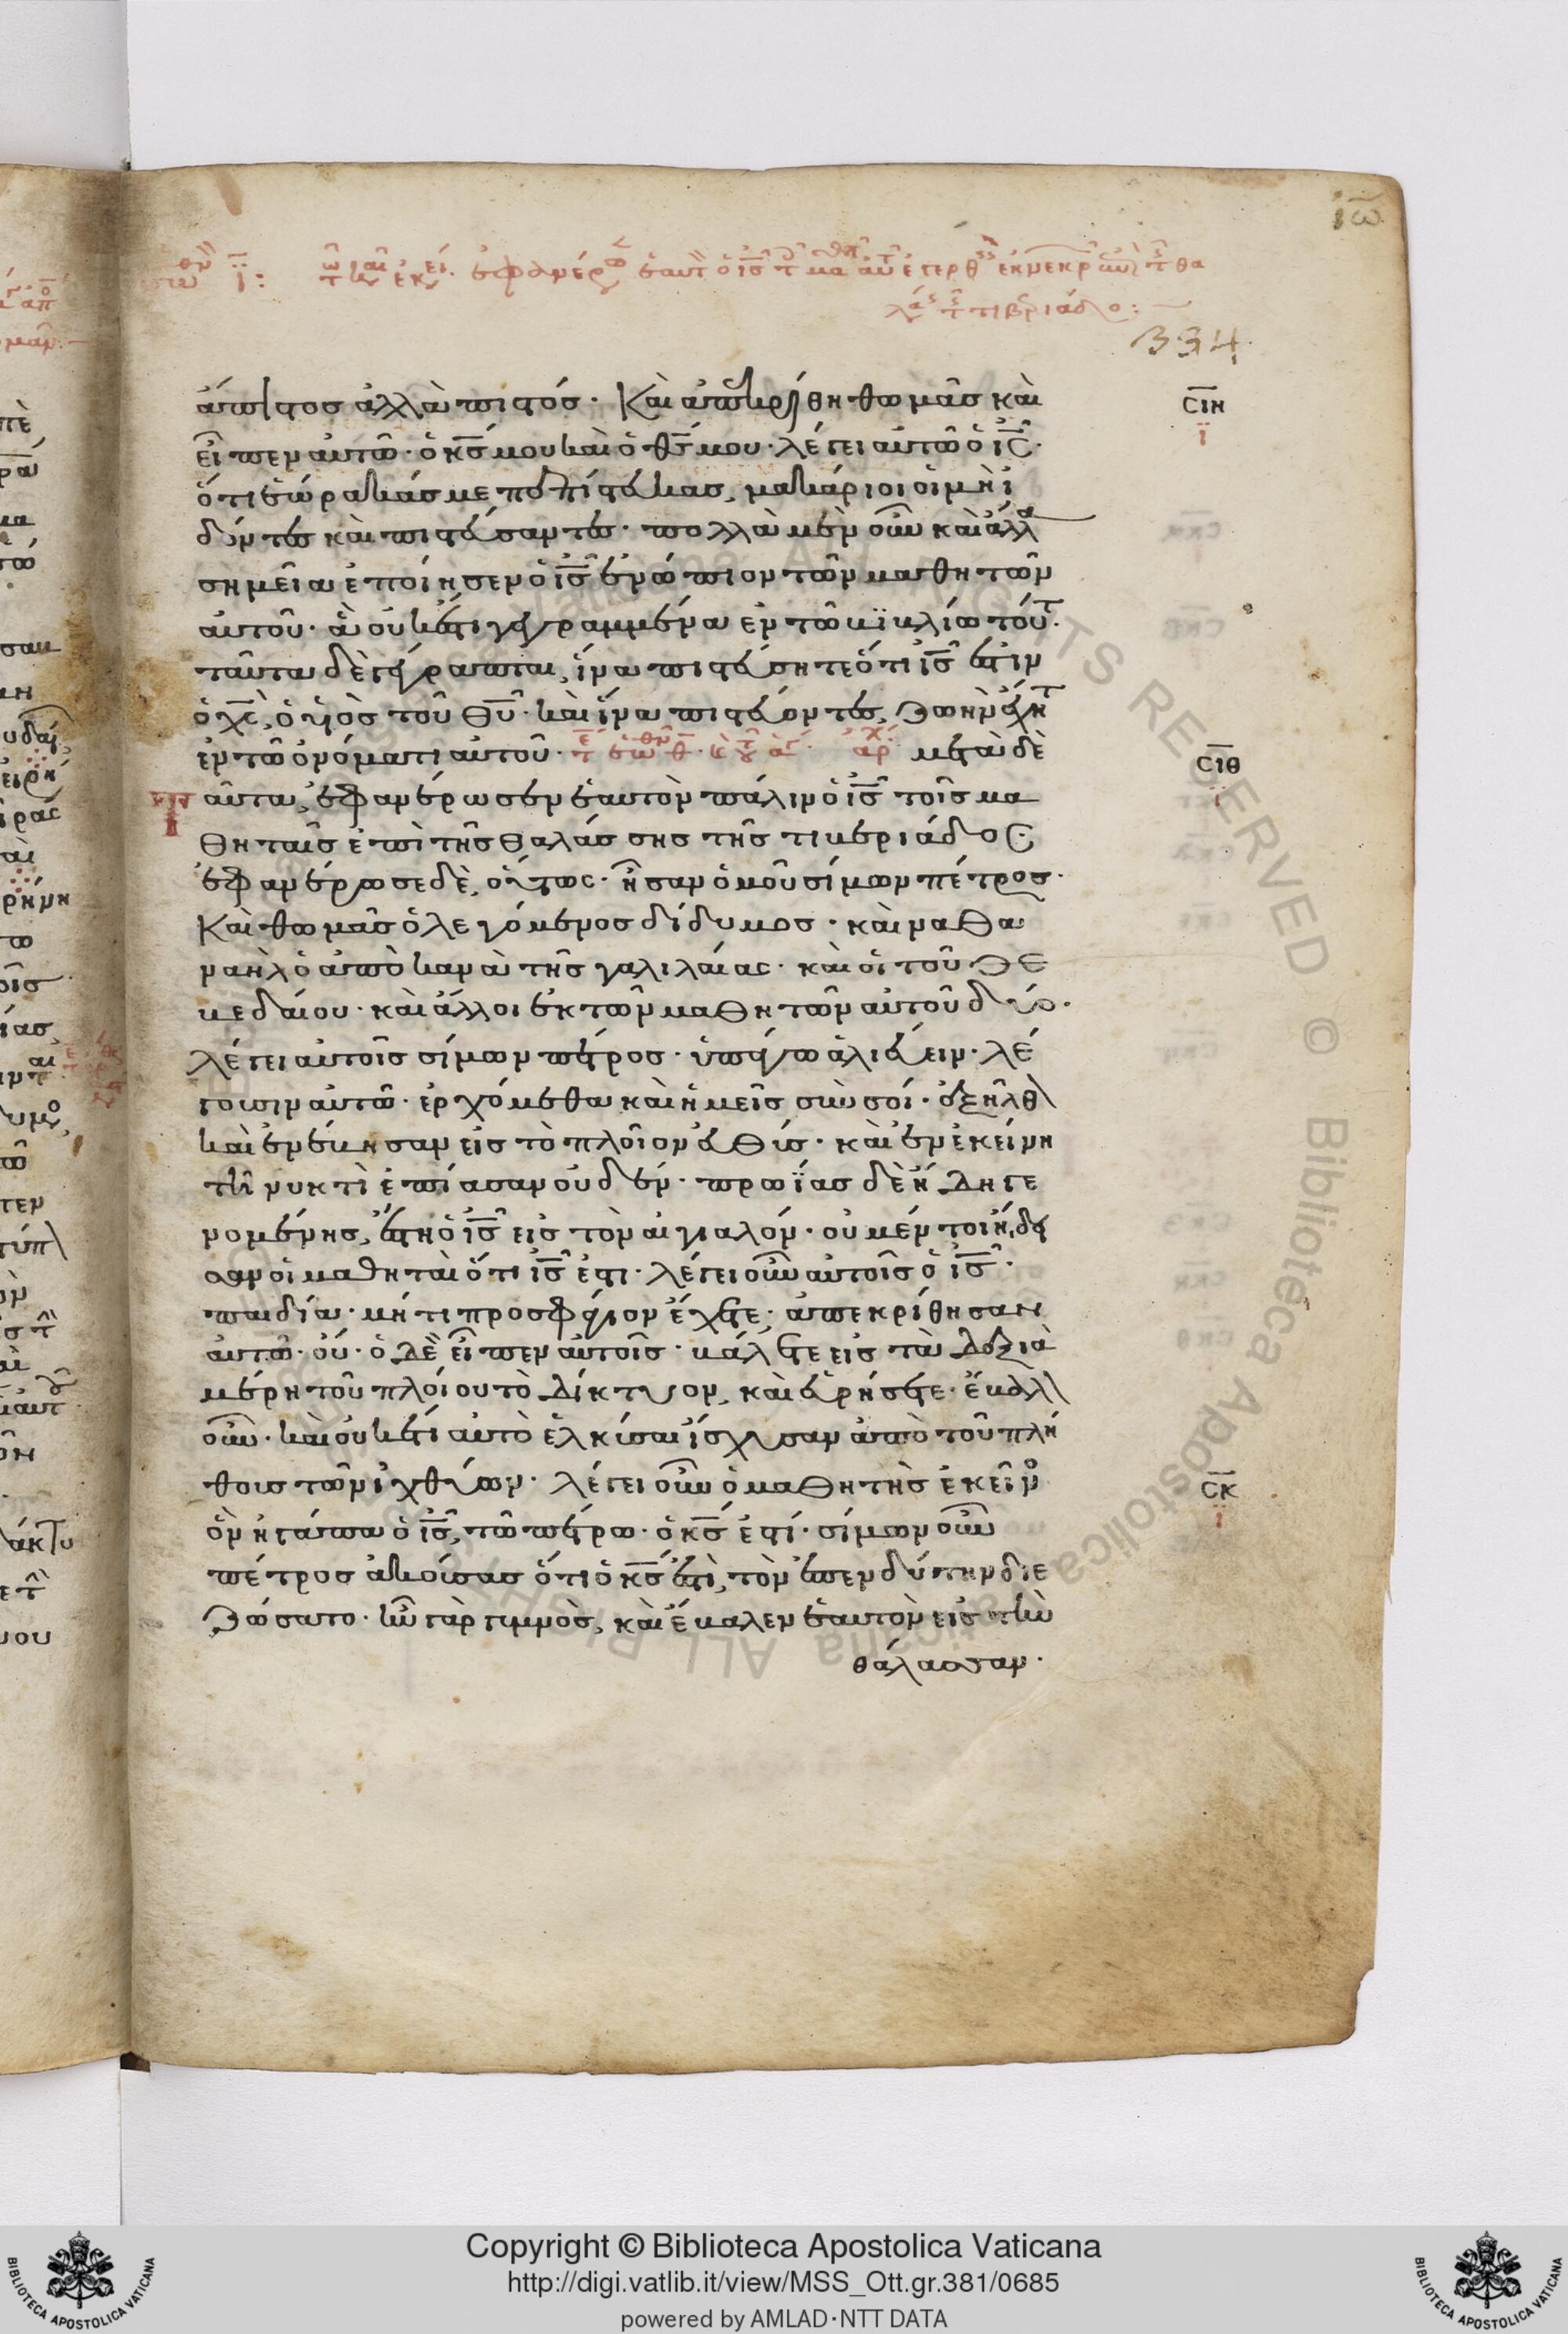 ἰω
334
ἄπιστος ἀλλὰ πιστός· Καὶ ἀπεκρίθη θωμᾶς καὶ
εἶπεν αὐτῶ· ὁ κς μου καὶ ὁ θς μου· λέγει αὐτῶ ὁ ις·
ὅτι ἑώρακάς με πεπίστευκας, μακάριοι οἱ μὴ ἰ
δόντες καὶ πιστεύσαντες· πολλὰ μὲν οὖν καὶ ἄλλα
σημεῖα ἐποίησεν ὁ ις ἐνώπιον τῶν μαθητῶν
αὐτοῦ· ἃ οὐκ ἔστι γεγραμμένα ἐν τῶ βϊβλίω τούτ
ταῦτα δὲ γέγραπται, ἵνα πιστεύσητε ὅτι ις ἐστιν
ὁ χς, ὁ υἱὸς τοῦ θυ· καὶ ἵνα πιστεύοντες, ζωὴν ἔχητ
ἐν τῶ ὀνόματι αὐτοῦ· μετὰ δὲ
Ταῦτα, ἐφανέρωσεν ἑαυτὸν πάλιν ὁ ις τοῖς μα
θηταῖς ἐπὶ τῆς θαλάσσης τῆς τιβεριάδος
ἐφανέρωσε δὲ, οὕτως· ἦσαν ὁμοῦ σίμων πέτρος·
Καὶ θωμᾶς ὁ λεγόμενος δίδυμος· καὶ ναθα
ναὴλ ὁ ἀπὸ κανὰ τῆς γαλιλαίας· καὶ οἱ τοῦ ζε
βεδαίου· καὶ ἄλλοι ἐκ τῶν μαθητῶν αὐτοῦ δύο·
λέγει αὐτοῖς σίμων πέτρος· ὑπάγω ἁλιεύειν· λέ
γουσιν αὐτῶ· ἐρχόμεθα καὶ ἡμεῖς σὺν σοί· ἐξῆλθ
καὶ ἐνέβησαν εἰς τὸ πλοῖον εὐθύς· καὶ ἐν ἐκείνη
τῆ νυκτὶ ἐπίασαν οὐδέν· πρωΐας δὲ ἤδη γε
νομένης, ἔστη ὁ ις εἰς τὸν αἰγιαλόν· οὐ μέντοι ἤδει
σαν οἱ μαθηταὶ ὅτι ις ἐστι· λέγει οὖν αὐτοῖς ὁ ις·
παιδία· μή τι προσφάγιον ἔχετε; ἀπεκρίθησαν
αὐτῶ· οὔ· ὁ δὲ εἶπεν αὐτοῖς· βάλετε εἰς τὰ δεξιὰ
μέρη τοῦ πλοίου τὸ δίκτυον, καὶ εὑρήσετε· ἔβαλ
οὖν· καὶ οὐκ ἔτι αὐτὸ ἑλκύσαι ἴσχυσαν ἀπὸ τοῦ πλή
θους τῶν ἰχθύων· λέγει οὖν ὁ μαθητὴς ἐκεῖνο
ὃν ἠγάπα ὁ ις, τῶ πέτρω· ὁ κς ἐστί· σίμων οὖν
πέτρος ἀκούσας ὅτι ὁ κς ἐστὶ, τὸν ἐπενδύτην διε
ζώσατο· ἦν γὰρ γυμνὸς, καὶ ἔβαλεν ἑαυτὸν εἰς τὴν
θάλασσαν·
σιη
ι
σιθ
ι
σκ
ι
Copyright © Biblioteca Apostolica Vaticana
http://digi.vatlib.it/view/MSS_Ott.gr.381/0685
powered by AMLAD·NTT DATA